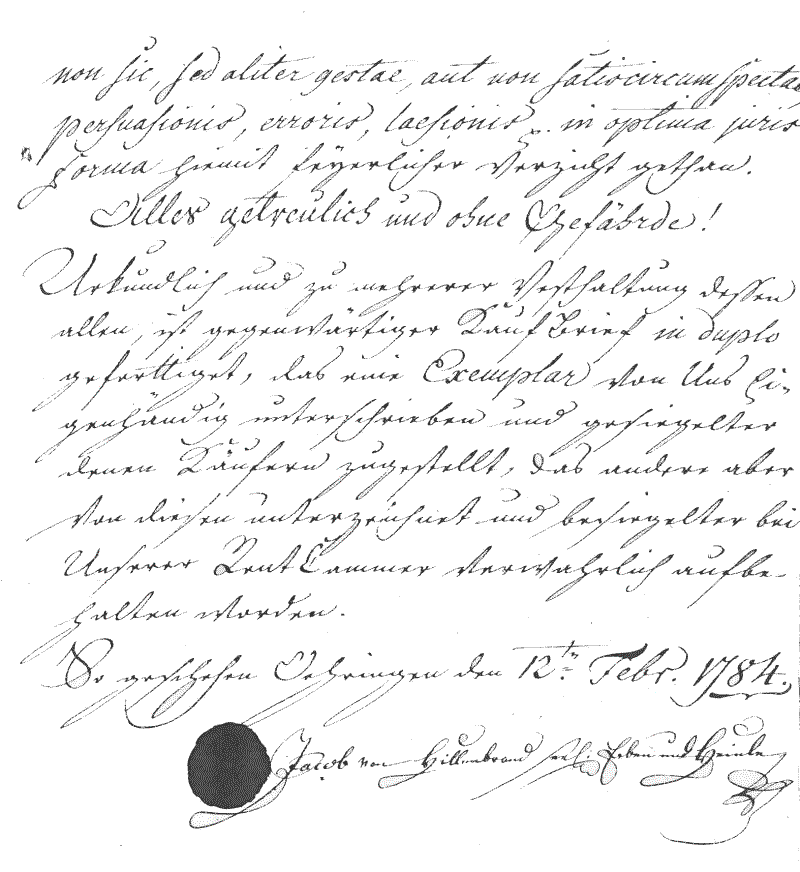 non sic, sed aliter gestae, aut non satis circumspectae
persuasionis, erroris, laesionis p. in optima juris
forma hiemit feyerlicher Verzicht gethan.
Alles getreulich und ohne Gefährde!
Urkundlich und zu mehrerer Vesthaltung dessen
allen, ist gegenwärtiger Kauf Brief in duplo
gefertiget, das eine Exemplar von Uns Ei-
genhändig unterschrieben und gesiegelter
denen Käufern zugestellt, das andere aber
von diesen unterzeichnet und besiegelter bei
Unserer Rent Cammer verwahrlich aufbe-
halten worden.
So geschehen Oehringen den 12.tn Febr. 1784.
Jacob von Hillenbrand seel. Erben und